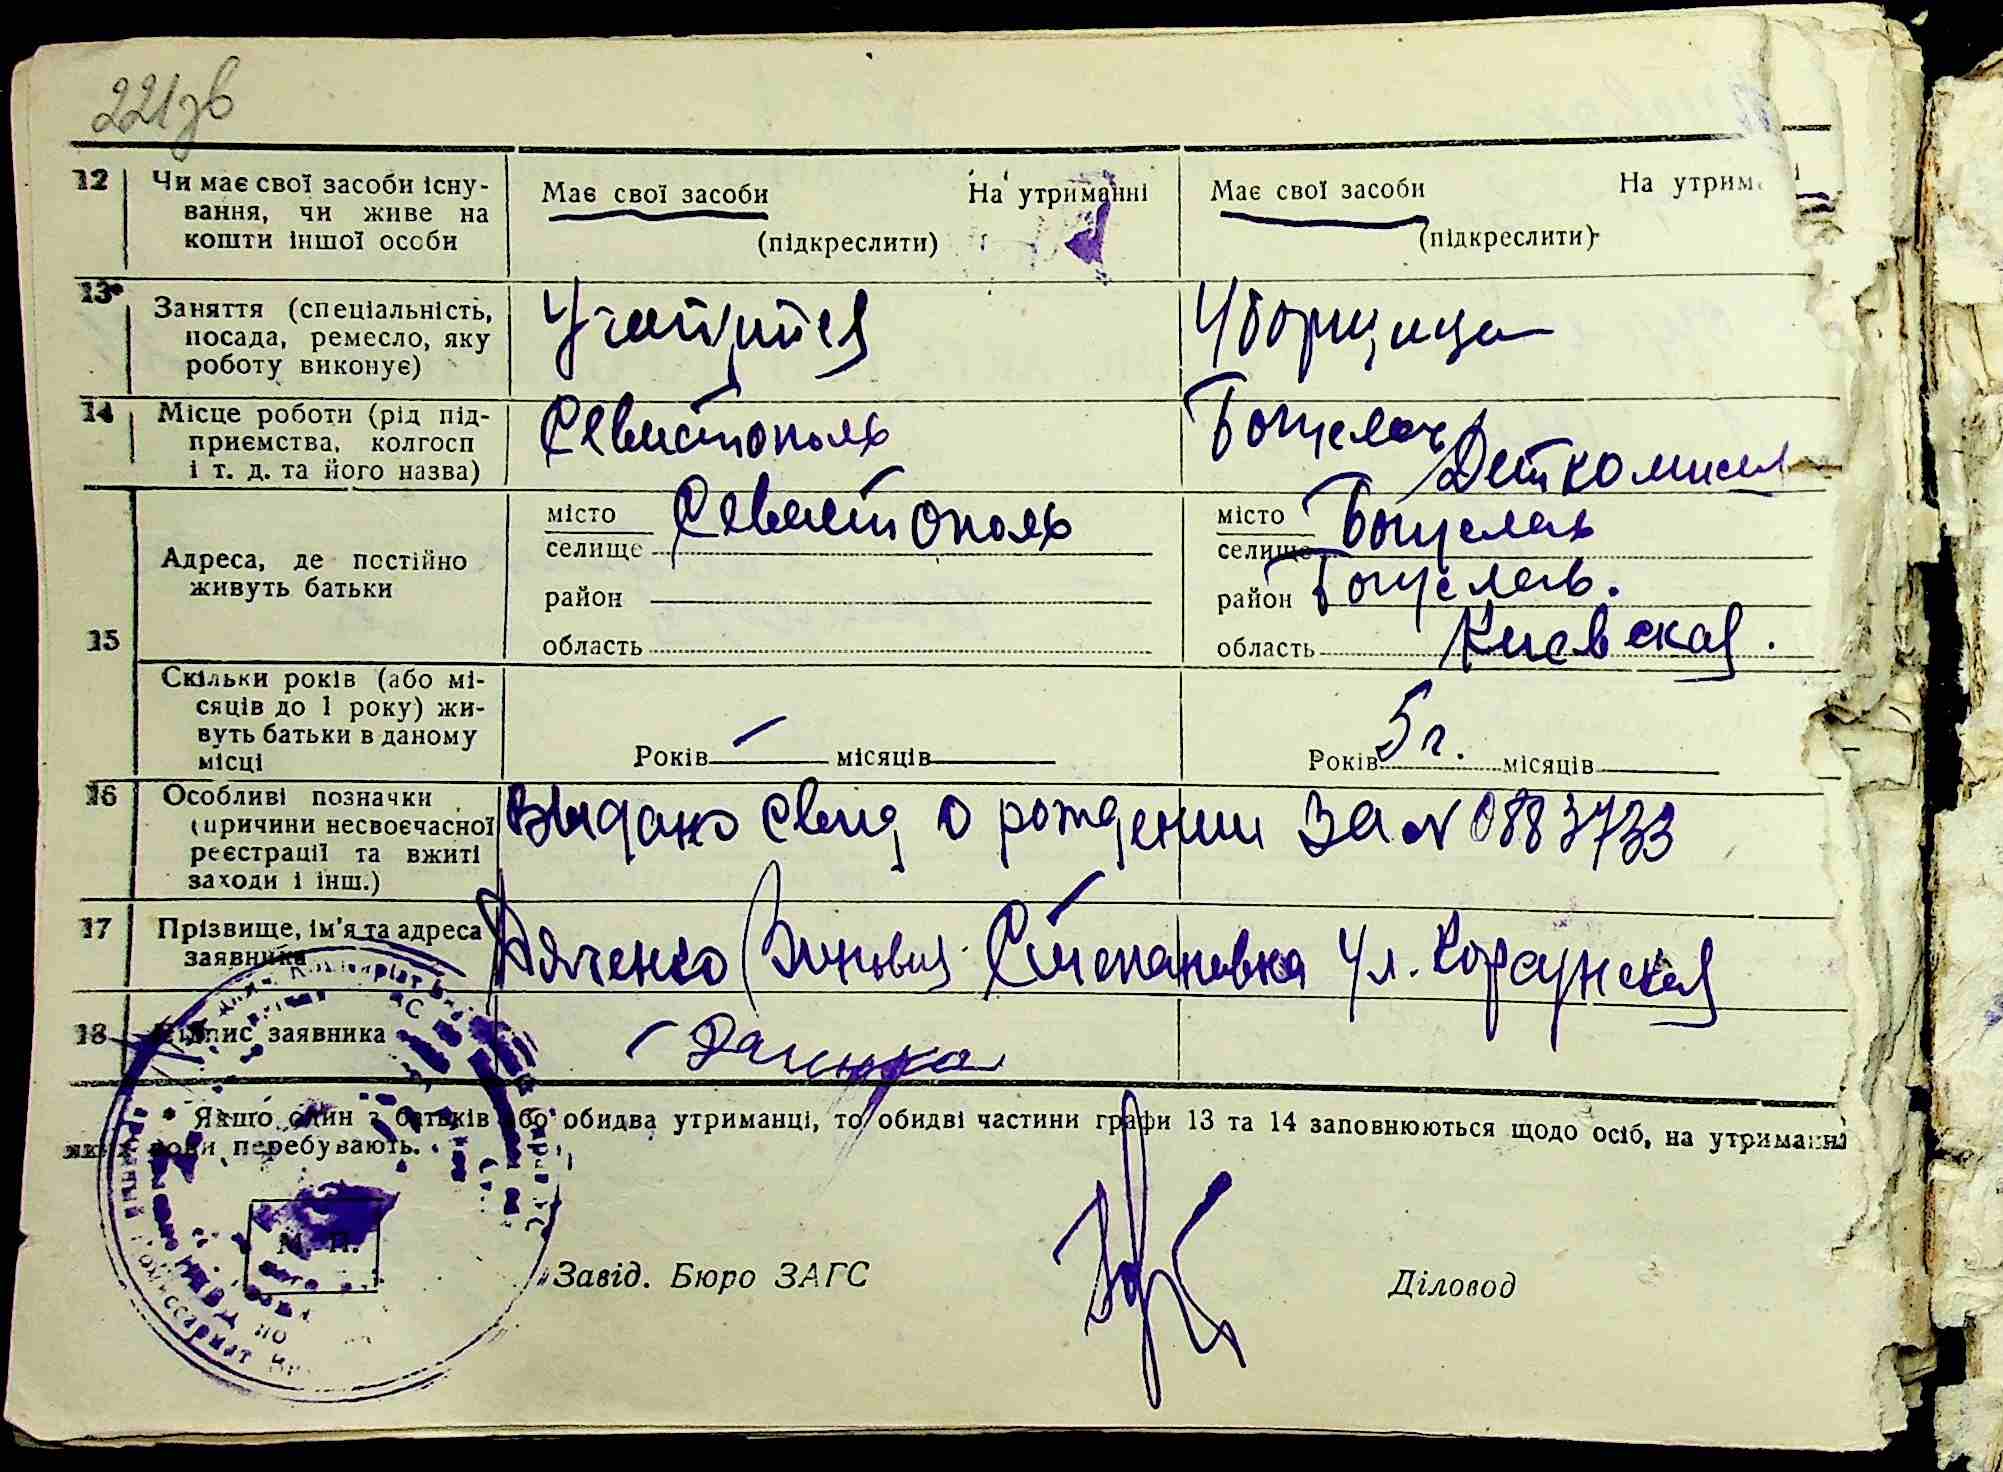 221зв
12 Чи має свої засоби існу-
вання, чи живе на
кошти іншої особи
Має свої засоби На утриманні
(підкреслити)
Має свої засоби На утрим
(підкреслити)
13* Заняття (спеціальність,
посада, ремесло, яку
роботу виконує)
Уборщица
14 Місце роботи (рід під-
приємства, колгосп
і т. д. та його назва)
Севастополь
Богуслав
Деткомисия
15
Адреса, де постійно
живуть батьки
місто Севастополь
селище
район
область
місто Богуслав
селище
район Богуслав.
область Киевская.
Скільки років (або мі-
сяців до 1 року) жи-
вуть батьки в даному
місці
Років — місяців
Років 5 г. місяців
16 Особливі позначки
(причини несвоєчасної
реєстрації та вжиті
заходи і інш.)
Выдано свид о рождении за N 0883733
17 Прізвище, ім'я та адреса
заявника
Дяченко Зиновия Степановна ул. Корсунская
18 Підпис заявника
* Якщо один з батьків або обидва утриманці, то обидві частини графи 13 та 14 заповнюються щодо осіб, на утриманні
яких вони перебувають.
М. П.
НКВД по
Завід. Бюро ЗАГС
Діловод